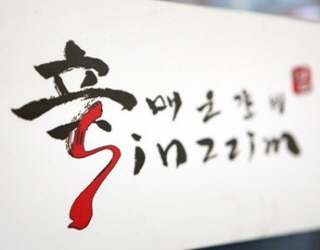 매운갈비
Jinzzim